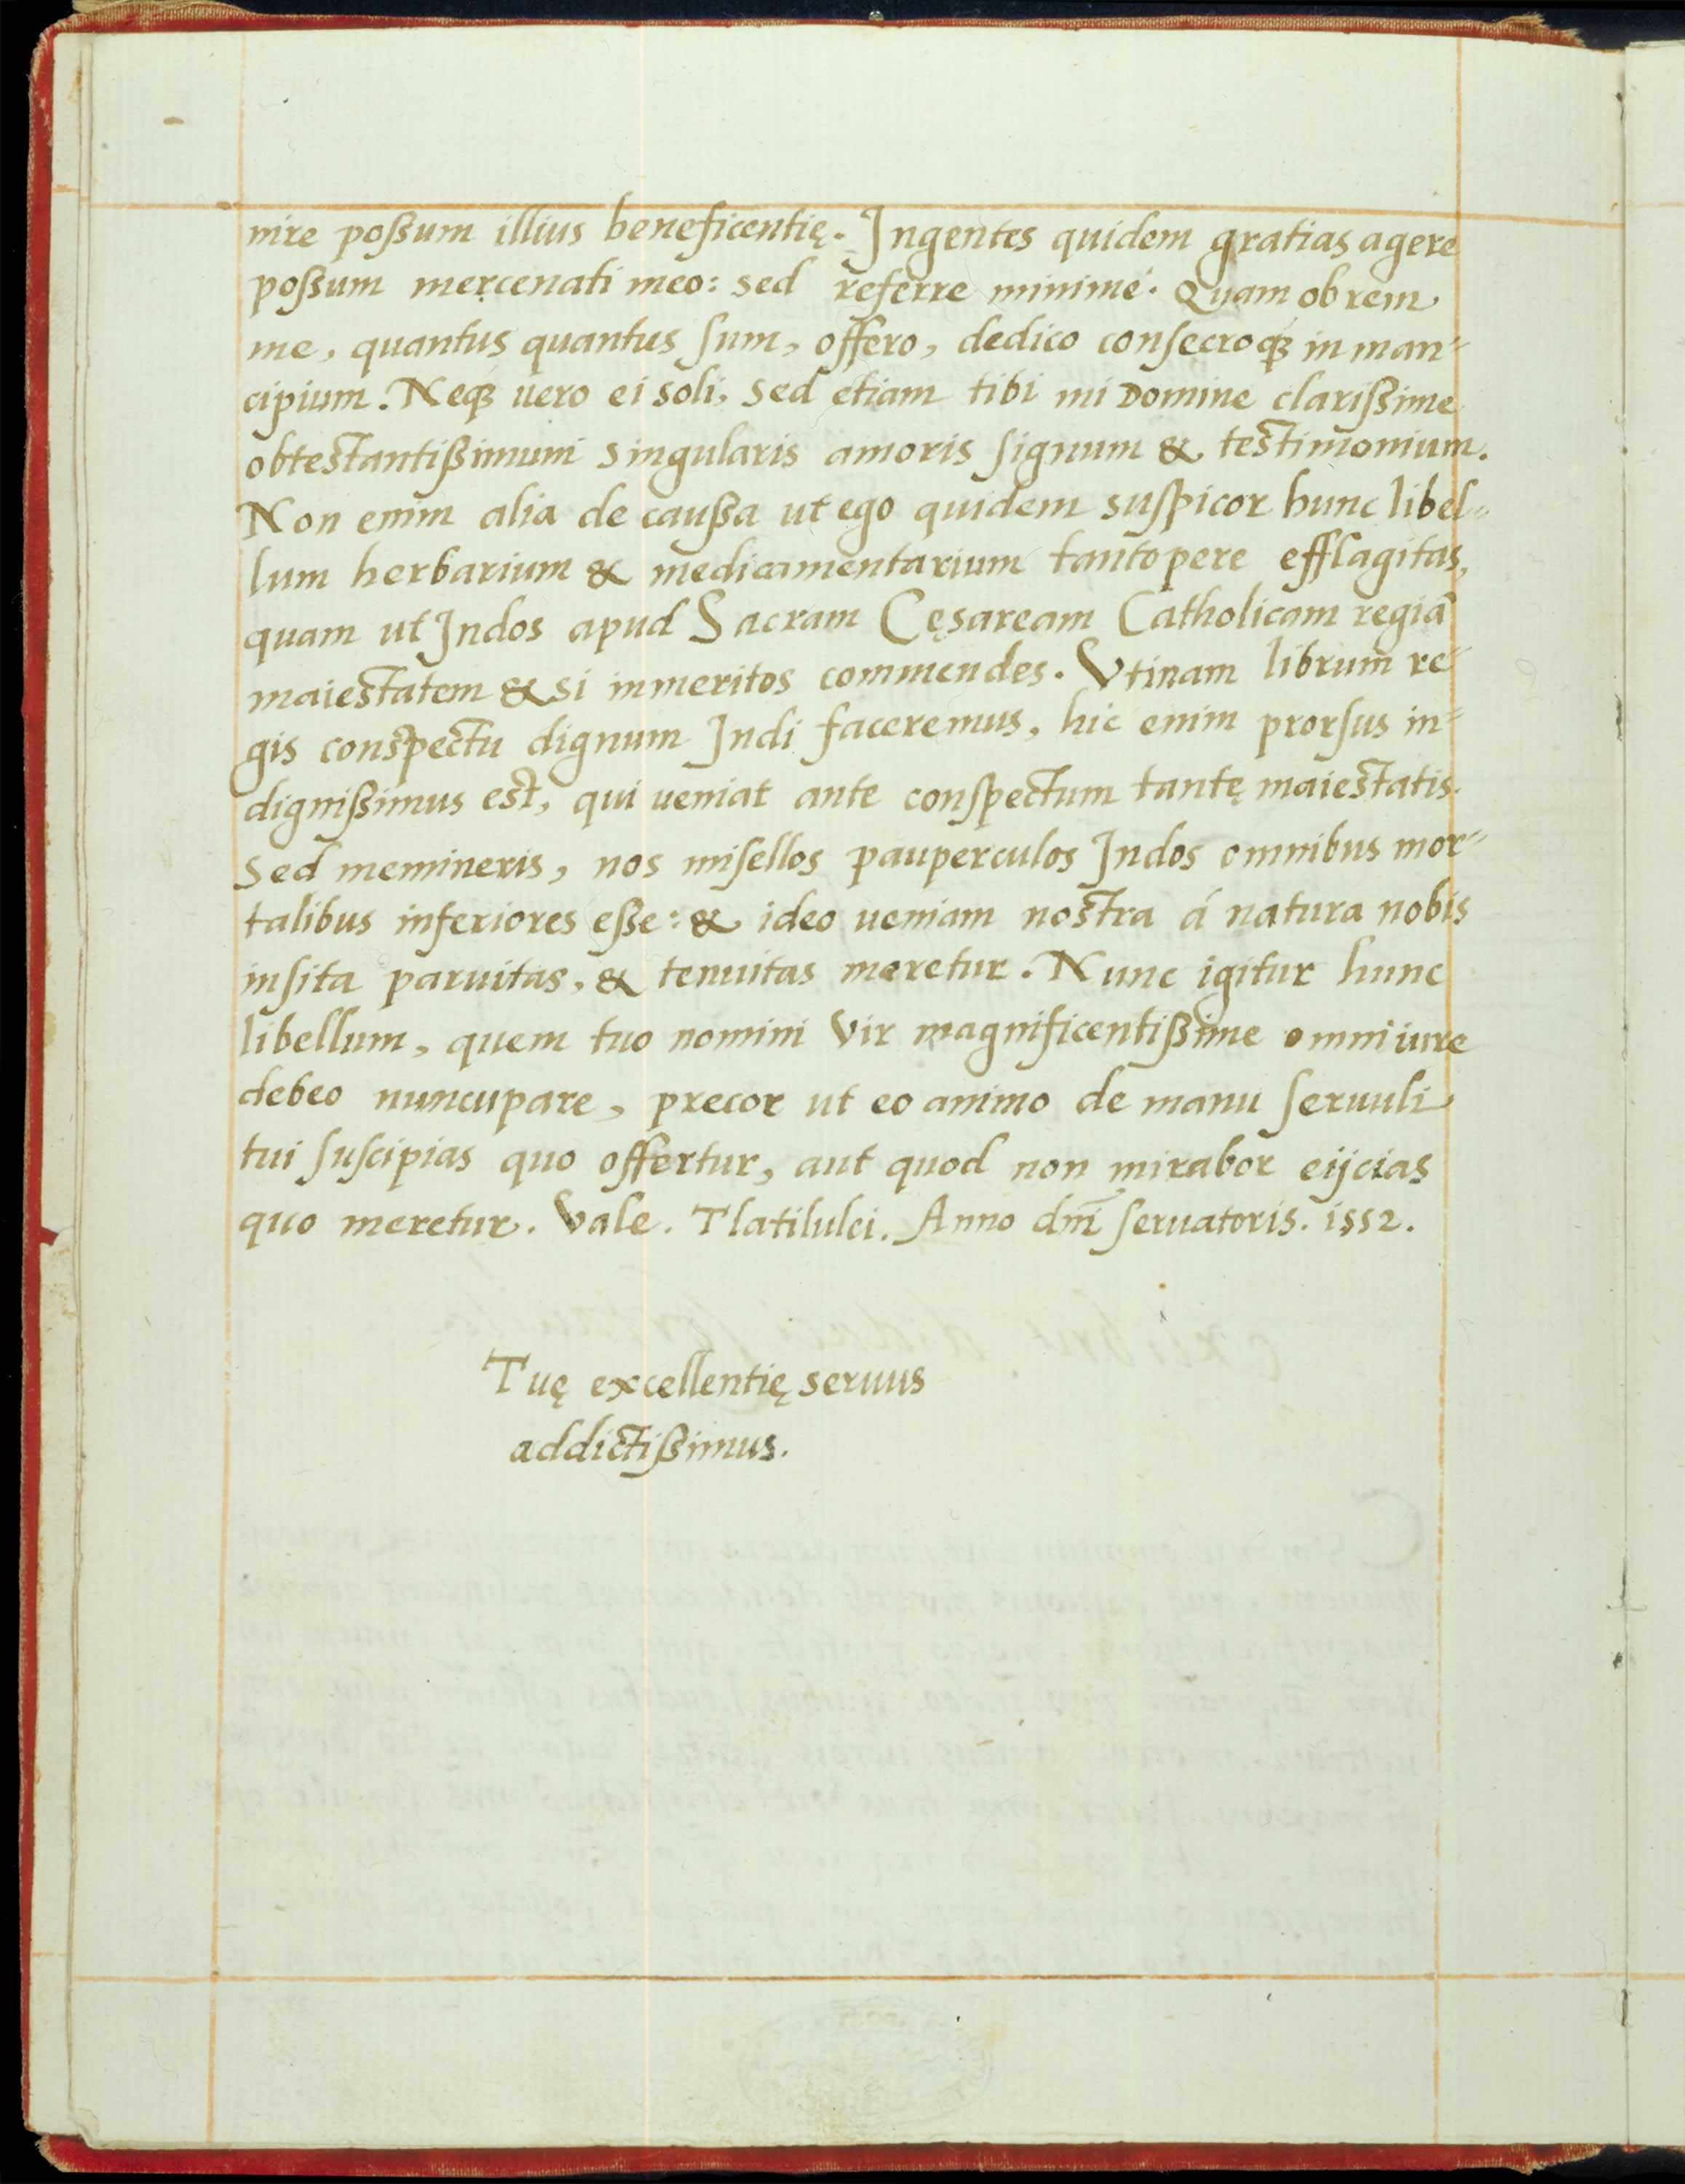 nire poßum illius beneficentię. Ingentes quidem gratias agere
poßum mercenati meo: sed referre minimé. Quam ob rem
me, quantus quantus sum, offero, dedico consecroqꝫ in man-
cipium. Neqꝫ uero ei soli, sed etiam tibi mi Domine clarißime
obtestantißimum singularis amoris signum & testimonium.
Non enim alia de caußa ut ego quidem suspicor hunc libel-
lum herbarium & medicamentarium tantopere efflagitas,
quam ut Indos apud Sacram Cęsaream Catholicam regiā
maiestatem & si inmeritos commendes. Vtinam librum re-
gis conspectu dignum Indi faceremus, hic enim prorsus in-
dignißimus est, qui ueniat ante conspectum tantę maiestatis.
Sed memineris, nos misellos pauperculos Indos omnibus mor-
talibus inferiores eße: & ideo ueniam nostra á natura nobis
insita paruitas, & tenuitas meretur. Nunc igitur hunc
libellum, quem tuo nomini Vir magnificentißime omni iure
debeo nuncupare, precor ut eo animo de manu seruuli
tui suscipias quo offertur, aut quod non mirabor eijcias
quo meretur. Vale. Tlatilulci. Anno dñi seruatoris. 1552.
Tuę excellentię seruus
addictißimus.